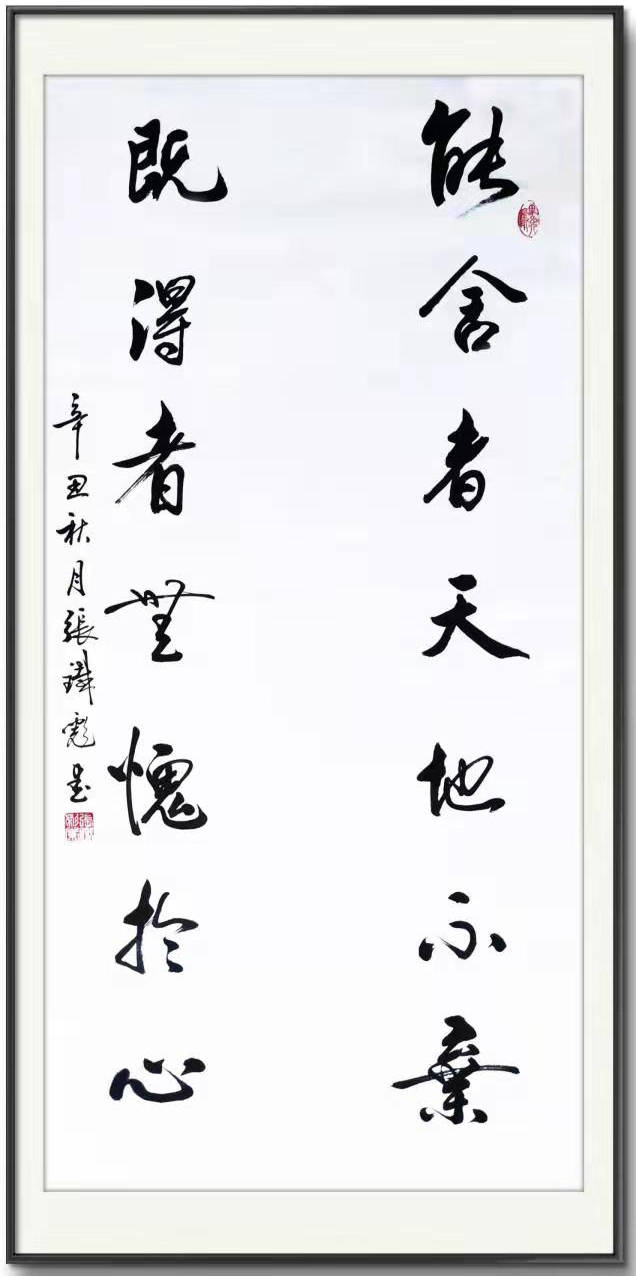 能舍者天地不棄
既得者無愧於心
辛丑秋月張鐵彪書